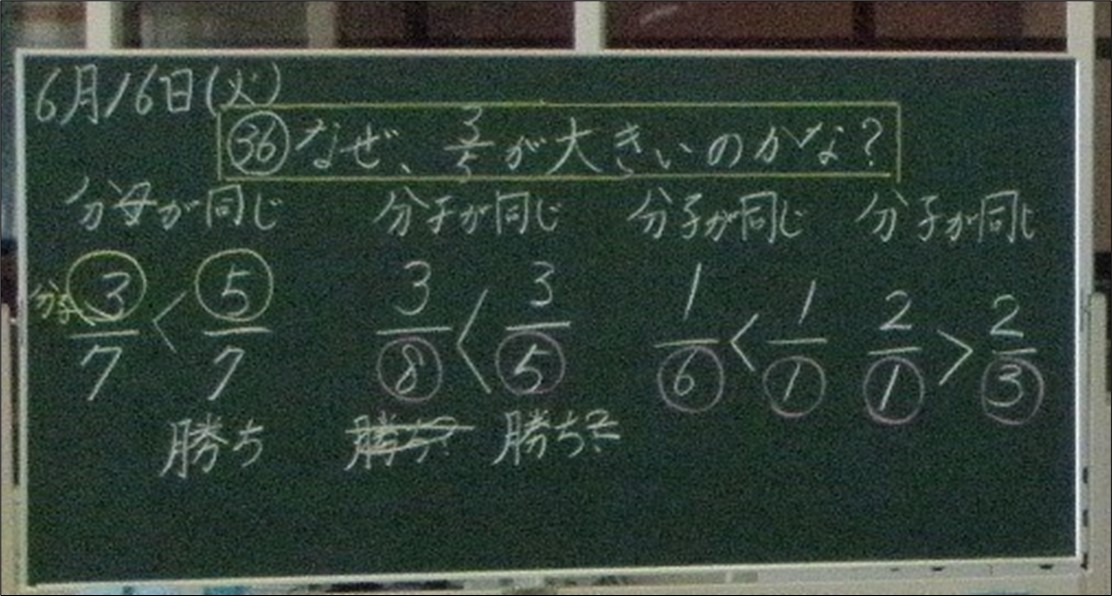 6月16日(火)
㊱なぜ、3/5が大きいのかな?
分母が同じ 分子が同じ 分子が同じ 分子が同じ
分子 3/7 < 5/7 3/8 < 3/5 1/6 < 1/1 2/1 > 2/3
勝ち 勝ち? 勝ち?